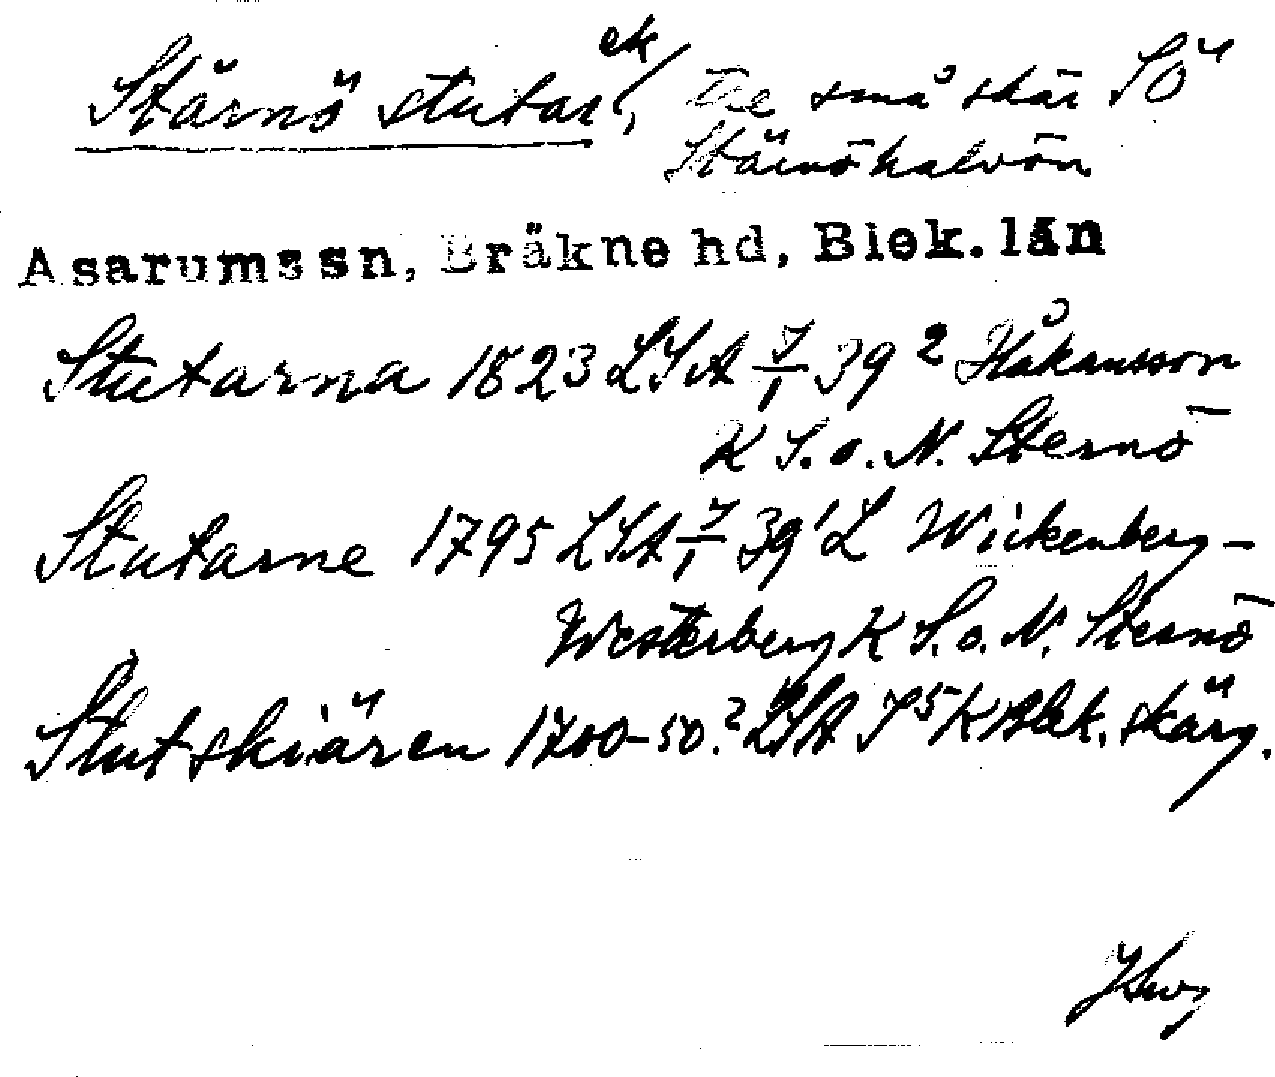 Stärnö stutar ek/, Tre små skär SÖ
Stärnöhalvön
Asarums sn, Bräkne hd, Blek. län
Stutarna 1823 LSA 7/1 39² Håkansson
K S. o. N. Sternö
Stutarne 1795 LSA 7/1 39¹ L Wickenberg-
Westerberg K S. o. N. Sternö
Stutskiären 1700-50.? LSA S⁵ K A Blek. skärg.